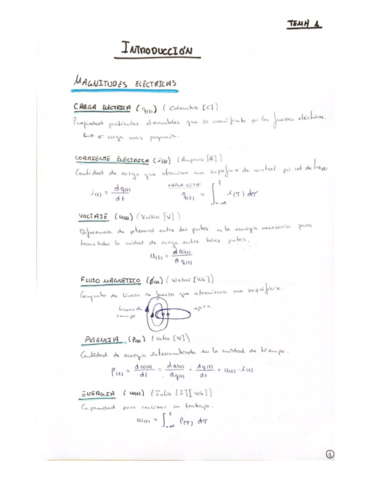 TEMA 1
INTRODUCCIÓN
MAGNITUDES ELÉCTRICAS
CARGA ELÉCTRICA (q(t)) (Coulombio [C])
Propiedad partículas elementales que se manifiesta por las fuerzas eléctricas.
carga más pequeña.
CORRIENTE ELÉCTRICA (i(t)) (Amperio [A])
Cantidad de carga que atraviesa una superficie de material por ud de tiempo
i(t) = dq(t) / dt q(t) = ∫ i(τ) dτ
VOLTAJE (u(t)) (Voltio [V])
Diferencia de potencial entre dos puntos es la energía necesaria para
trasladar la unidad de carga entre estos puntos.
u(t) = dω(t) / dq(t)
FLUJO MAGNÉTICO (φ(t)) (Weber [Wb])
Conjunto de líneas de fuerza que atraviesan una superficie.
líneas de campo
POTENCIA (P(t)) (Vatio [W])
Cantidad de energía intercambiada en la unidad de tiempo.
P(t) = dω(t) / dt = dω(t) / dq(t) · dq(t) / dt = u(t) · i(t)
ENERGÍA (ω(t)) (Julio [J])
Capacidad para realizar un trabajo.
ω(t) = ∫ P(τ) dτ
1